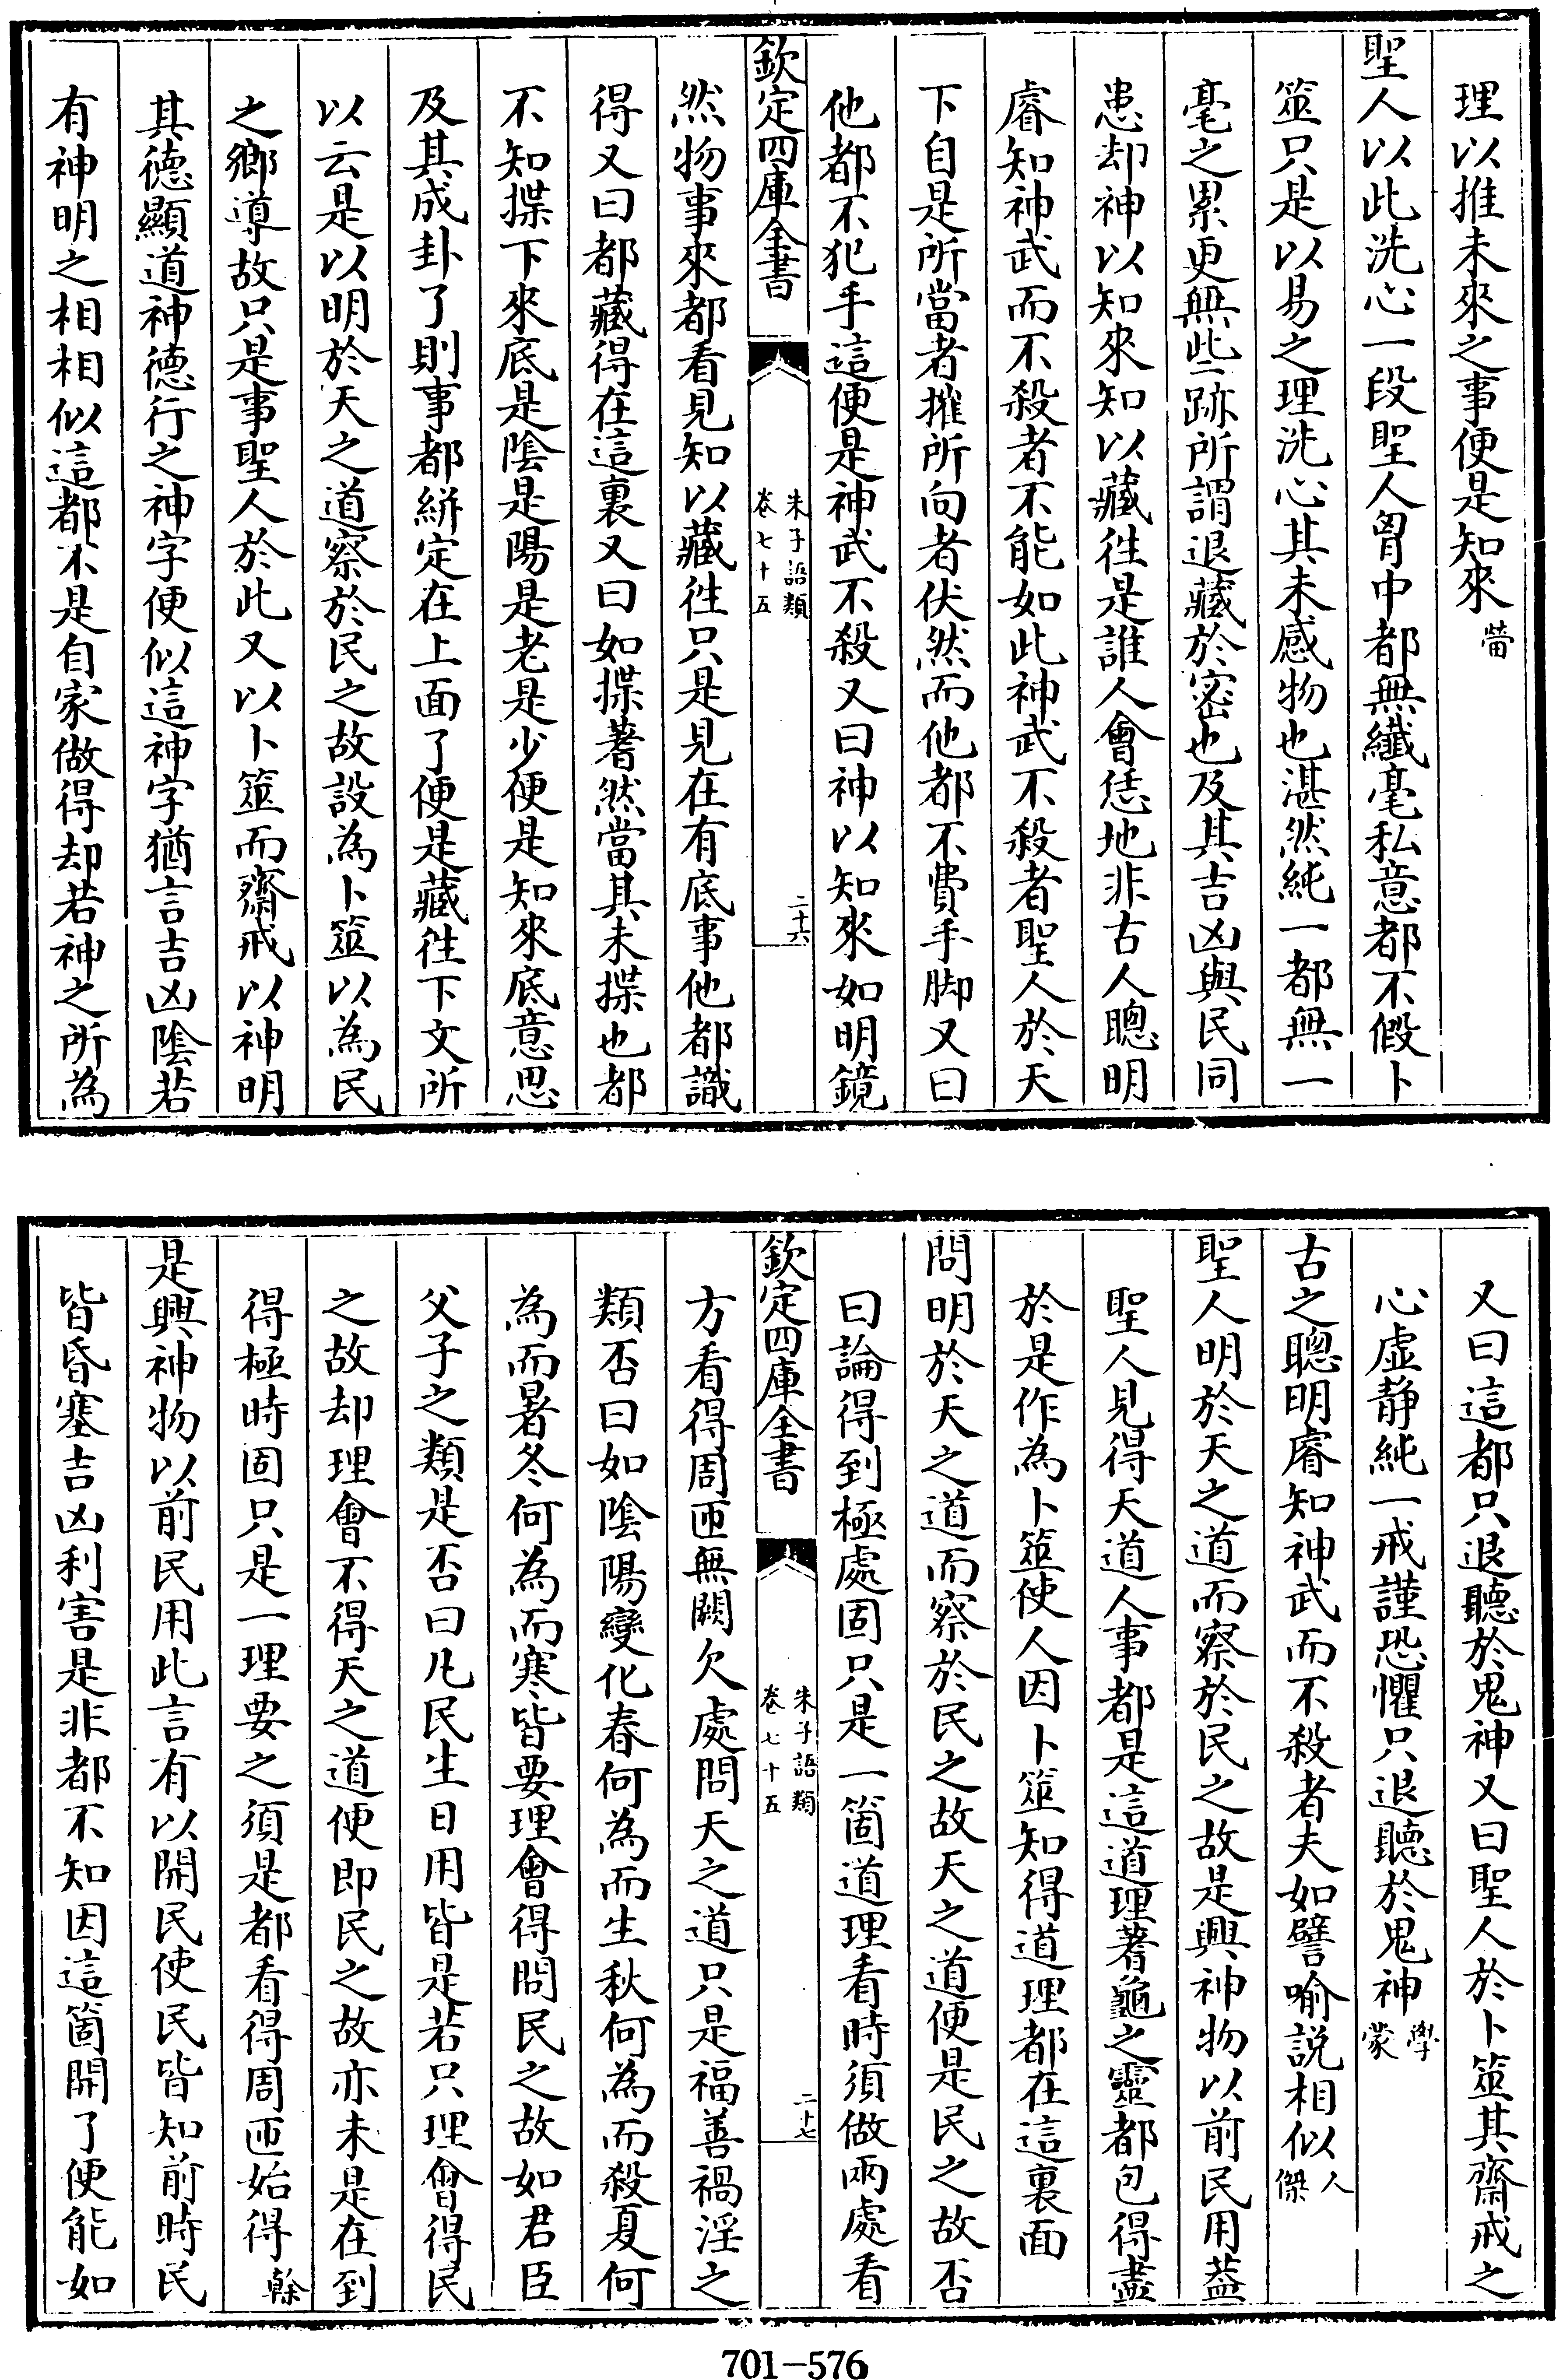 理以推未來之事便是知來㽦
聖人以此洗心一段聖人胷中都無纖毫私意都不假卜
筮只是以易之理洗心其未感物也湛然純一都無一
毫之累更無些跡所謂退藏於密也及其吉凶與民同
患却神以知來知以藏徃是誰人會恁地非古人聰明
睿知神武而不殺者不能如此神武不殺者聖人於天
下自是所當者摧所向者伏然而他都不費手脚又曰
他都不犯手這便是神武不殺又曰神以知來如明鏡
欽定四庫全書
朱子語類
卷七十五
二十六
然物事來都看見知以藏徃只是見在有底事他都識
得又曰都藏得在這裏又曰如揲蓍然當其未揲也都
不知揲下來底是陰是陽是老是少便是知來底意思
及其成卦了則事都絣定在上面了便是藏徃下文所
以云是以明於天之道察於民之故設為卜筮以為民
之鄉導故只是事聖人於此又以卜筮而齋戒以神明
其德顯道神德行之神字便似這神字猶言吉凶陰若
有神明之相相似這都不是自家做得却若神之所為
又曰這都只退聽於鬼神又曰聖人於卜筮其齋戒之
心虛靜純一戒謹恐懼只退聽於鬼神學蒙
古之聰明睿知神武而不殺者夫如譬喻説相似人傑
聖人明於天之道而察於民之故是興神物以前民用葢
聖人見得天道人事都是這道理蓍龜之靈都包得盡
於是作為卜筮使人因卜筮知得道理都在這裏面
問明於天之道而察於民之故天之道便是民之故否
曰論得到極處固只是一箇道理看時須做兩處看
欽定四庫全書
朱子語類
卷七十五
二十七
方看得周匝無闕欠處問天之道只是福善禍淫之
類否曰如陰陽變化春何為而生秋何為而殺夏何
為而暑冬何為而寒皆要理會得問民之故如君臣
父子之類是否曰凡民生日用皆是若只理會得民
之故却理會不得天之道便即民之故亦未是在到
得極時固只是一理要之須是都看得周匝始得榦
是興神物以前民用此言有以開民使民皆知前時民
皆昏塞吉凶利害是非都不知因這箇開了便能如
701-576